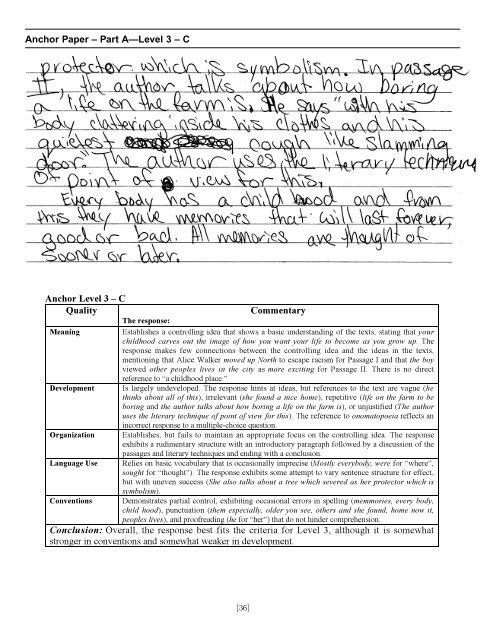 Anchor Paper – Part A—Level 3 – C
protector which is symbolism. In passage
II, the author talks about how boring
a life on the farm is. He says "with his
body clattering inside his clothes and his
quietest cough like slamming
door." The author uses the literary technique
of point of view for this.
Every body has a child hood and from
this they have memories that will last forever,
good or bad. All memories are thought of
sooner or later.
Anchor Level 3 – C
Quality Commentary
The response:
Meaning Establishes a controlling idea that shows a basic understanding of the texts, stating that your
childhood carves out the image of how you want your life to become as you grow up. The
response makes few connections between the controlling idea and the ideas in the texts,
mentioning that Alice Walker moved up North to escape racism for Passage I and that the boy
viewed other peoples lives in the city as more exciting for Passage II. There is no direct
reference to “a childhood place.”
Development Is largely undeveloped. The response hints at ideas, but references to the text are vague (he
thinks about all of this), irrelevant (she found a nice home), repetitive (life on the farm to be
boring and the author talks about how boring a life on the farm is), or unjustified (The author
uses the literary technique of point of view for this). The reference to onomatopoeia reflects an
incorrect response to a multiple-choice question.
Organization Establishes, but fails to maintain an appropriate focus on the controlling idea. The response
exhibits a rudimentary structure with an introductory paragraph followed by a discussion of the
passages and literary techniques and ending with a conclusion.
Language Use Relies on basic vocabulary that is occasionally imprecise (Mostly everybody, were for “where”,
sought for “thought”). The response exhibits some attempt to vary sentence structure for effect,
but with uneven success (She also talks about a tree which severed as her protector which is
symbolism).
Conventions Demonstrates partial control, exhibiting occasional errors in spelling (memmories, every body,
child hood), punctuation (them especially, older you see, others and she found, home now it,
peoples lives), and proofreading (he for “her”) that do not hinder comprehension.
Conclusion: Overall, the response best fits the criteria for Level 3, although it is somewhat
stronger in conventions and somewhat weaker in development.
[36]